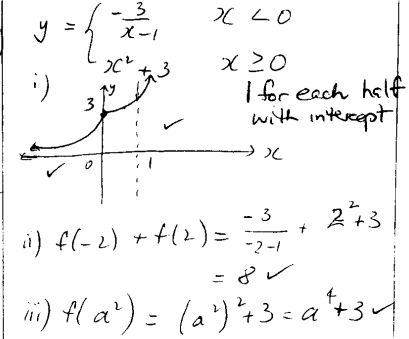 y = { -3/(x-1)   x < 0
x² + 3   x ≥ 0
i)
1 for each half
with intercept
y
3
✓
0   1   x
✓
ii) f(-2) + f(2) = -3/(-2-1) + 2²+3
= 8 ✓
iii) f(a²) = (a²)²+3 = a⁴+3 ✓